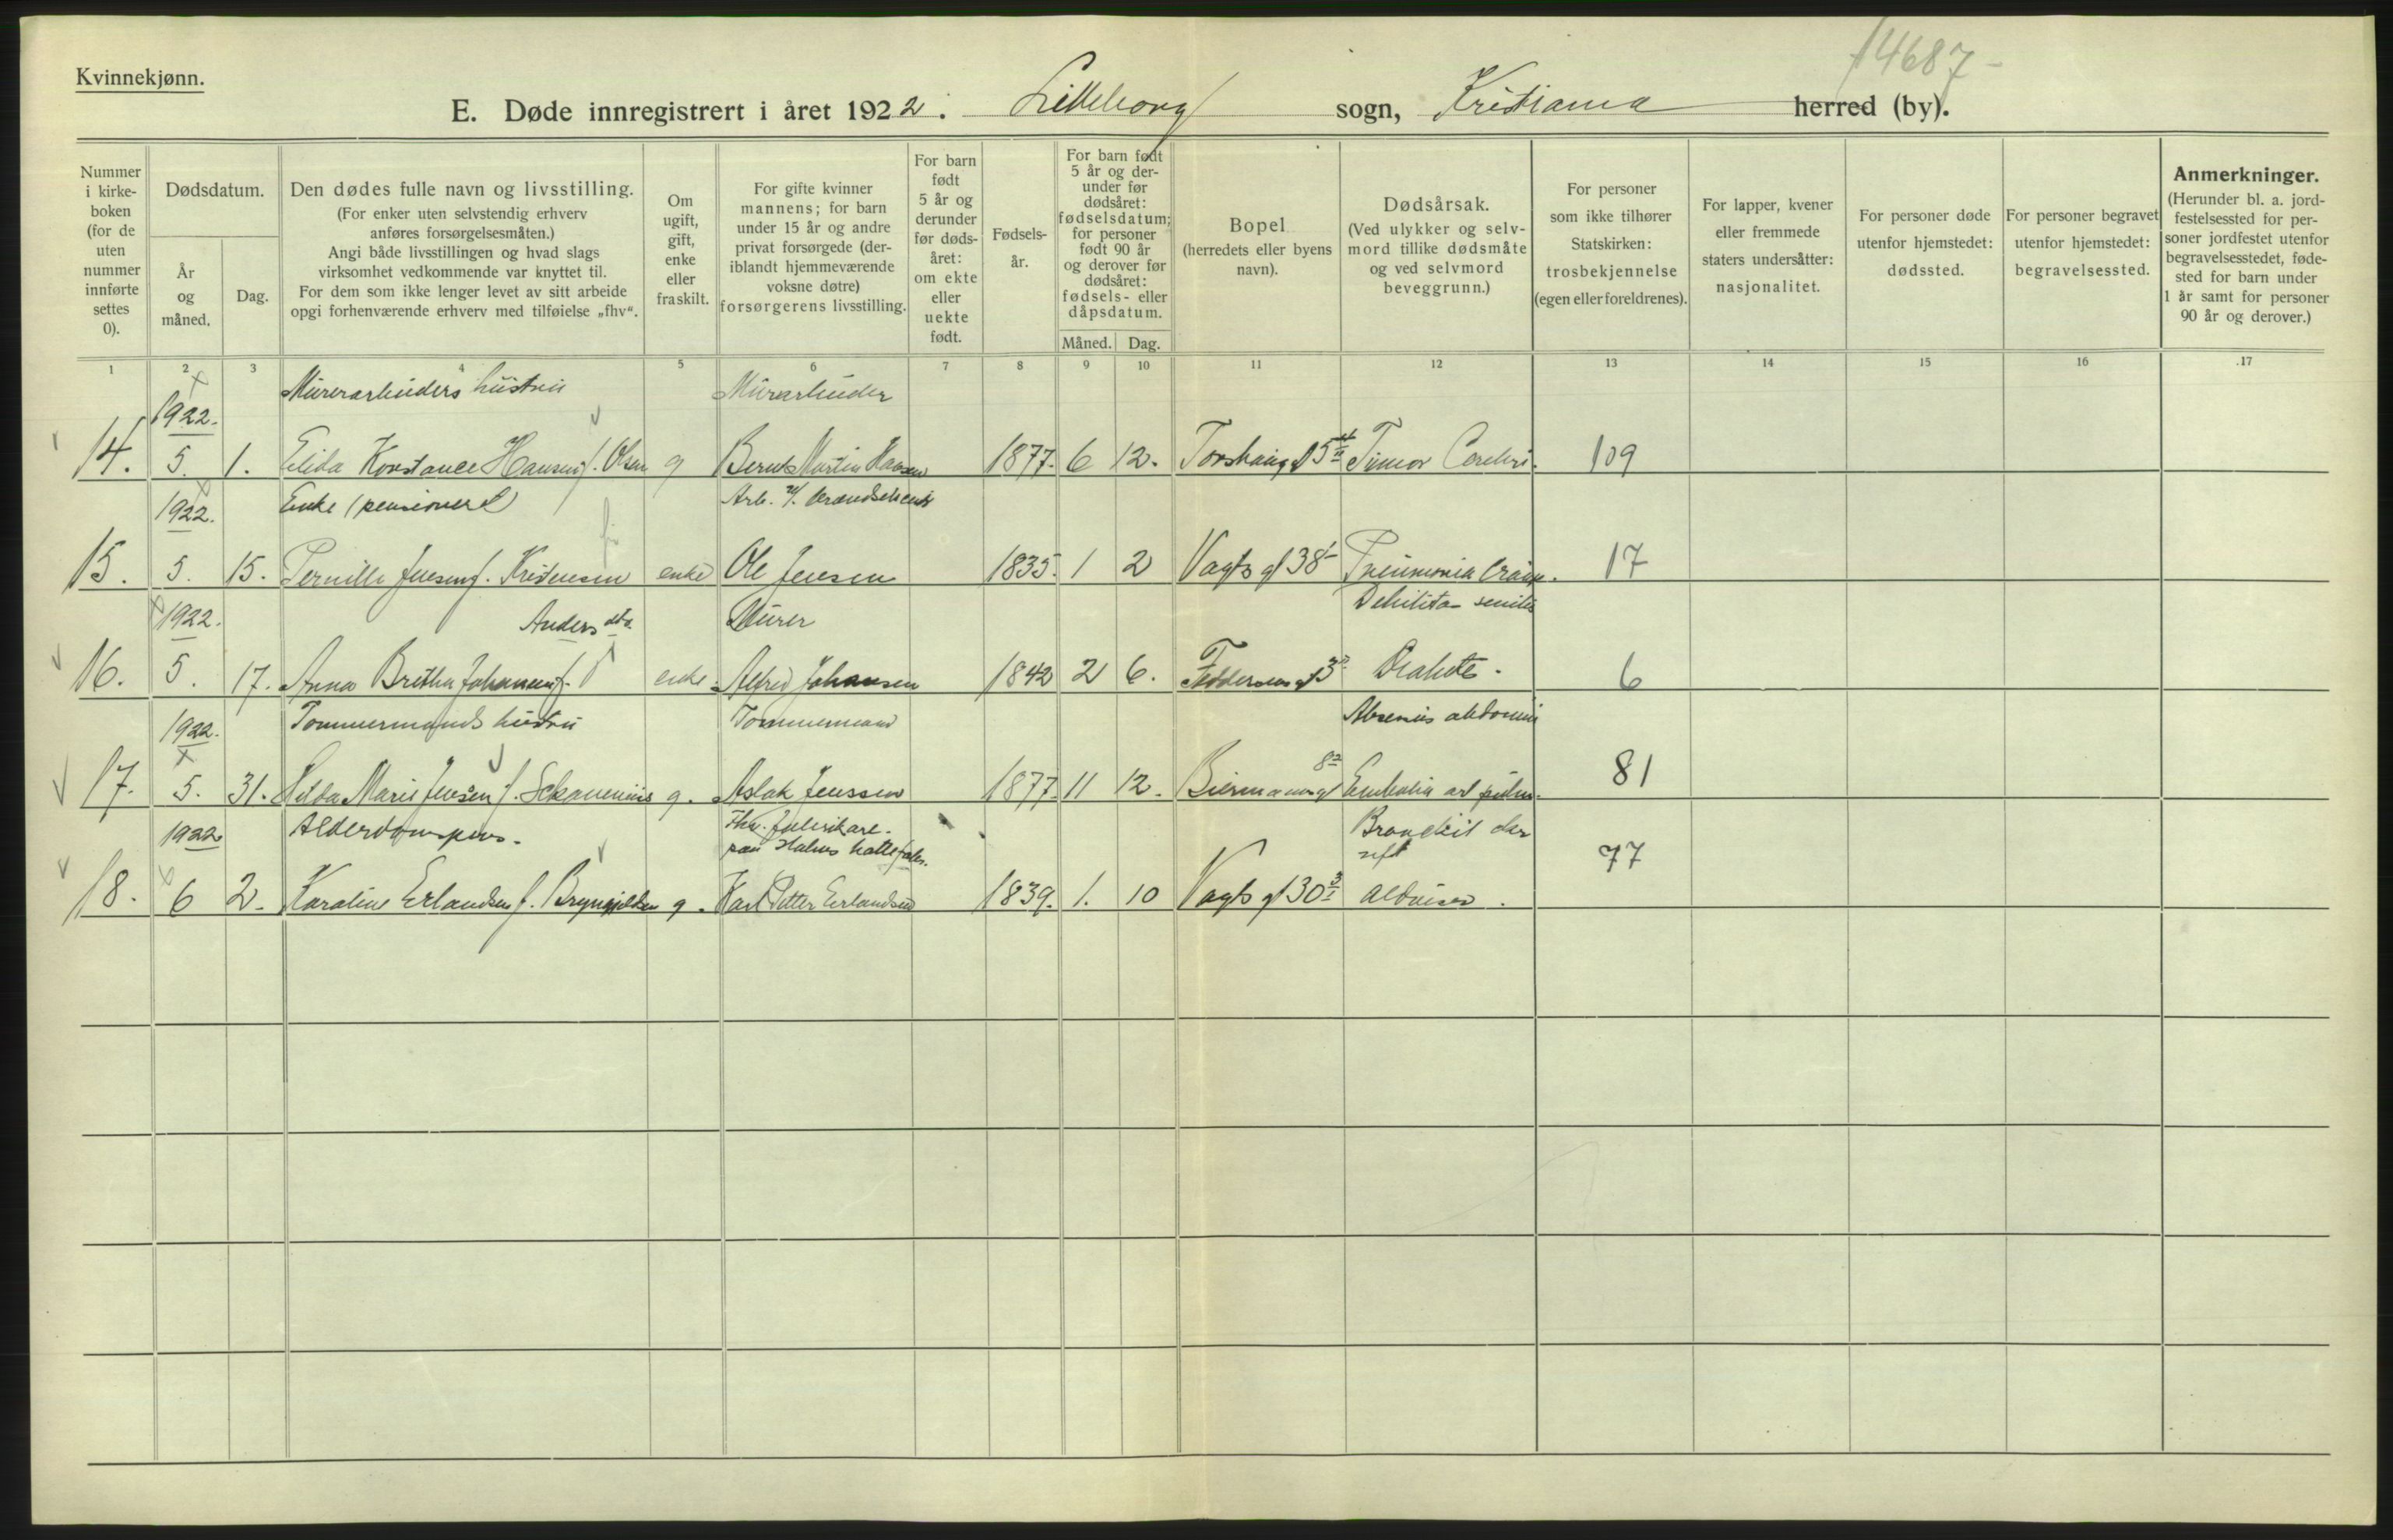 14687-
Kvinnekjønn.
E. Døde innregistrert i året 1922. Lilleborg sogn, Kristiania herred (by).
Nummer i kirke-boken (for de uten nummer innførte settes 0).
Dødsdatum.
År og måned.
Dag.
Den dødes fulle navn og livsstilling.
(For enker uten selvstendig erhverv anføres forsørgelsesmåten.)
Angi både livsstillingen og hvad slags virksomhet vedkommende var knyttet til.
For dem som ikke lenger levet av sitt arbeide opgi forhenværende erhverv med tilføielse „fhv“.
Om ugift, gift, enke eller fraskilt.
For gifte kvinner mannens; for barn under 15 år og andre privat forsørgede (der-iblandt hjemmeværende voksne døtre) forsørgerens livsstilling.
For barn født 5 år og derunder før døds-året: om ekte eller uekte født.
Fødsels-år.
For barn født 5 år og der-under før dødsåret: fødselsdatum; for personer født 90 år og derover før dødsåret: fødsels- eller dåpsdatum.
Måned. Dag.
Bopel (herredets eller byens navn).
Dødsårsak.
(Ved ulykker og selv-mord tillike dødsmåte og ved selvmord beveggrunn.)
For personer som ikke tilhører Statskirken: trosbekjennelse (egen eller foreldrenes).
For lapper, kvener eller fremmede staters undersåtter: nasjonalitet.
For personer døde utenfor hjemstedet: dødssted.
For personer begravet utenfor hjemstedet: begravelsessted.
Anmerkninger.
(Herunder bl. a. jord-festelsessted for per-soner jordfestet utenfor begravelsesstedet, føde-sted for barn under 1 år samt for personer 90 år og derover.)
1 2 3 4 5 6 7 8 9 10 11 12 13 14 15 16 17
1922. Murerarbeiders hustru Murarbeider
14. 5. 1. Elida Konstance Hansen f. Olsen g Bernt Martin Hansen 1877. 6 12. Torshaug 5 Tumor Cerebri. 109
1922. Enke (pensionert) Arb. v. brandvesenet
15. 5. 15. Pernille Jensen f. Kristensen enke Ole Jensen 1835. 1 2 Vagts gt 38 Pneumonia Croup. 17
1922. Anders dtr. Murer Debilitas senilis
16. 5. 17. Anna Bretha Johansen f. enke. Alfred Johansen 1842 2 6. Feddersens gt 3 Diabetes. 6
1922. Tømmermands hustru Tømmermand abdomin
17. 5. 31. Hilda Marie Jensen f. Schavenius g. Aslak Jenssen 1877. 11 12. Biermanns gt 8 Embolia art pulm. 81
1922 Alderdomspens. Fhv. fabrikarb. Bronchit
paa Halvs
18. 6 2. Karoline Erlandsen f. g. Karl Petter Erlandsen 1839. 1. 10 Vagts gt 30 77